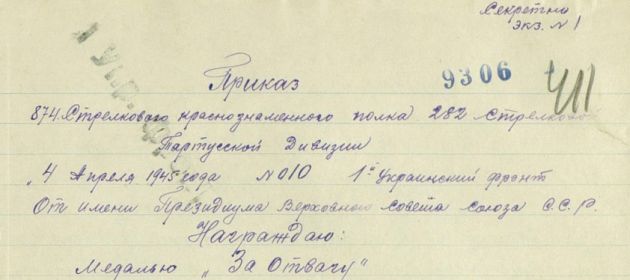 Секретно
экз. №1
Приказ
9306
411
874. Стрелкового краснознаменного полка 282 Стрелковой
Тартусской Дивизии
"4 Апреля 1945 года №010 1й Украинский фронт
От имени Президиума Верховного совета союза С.С.Р.
Награждаю:
Медалью "За Отвагу"